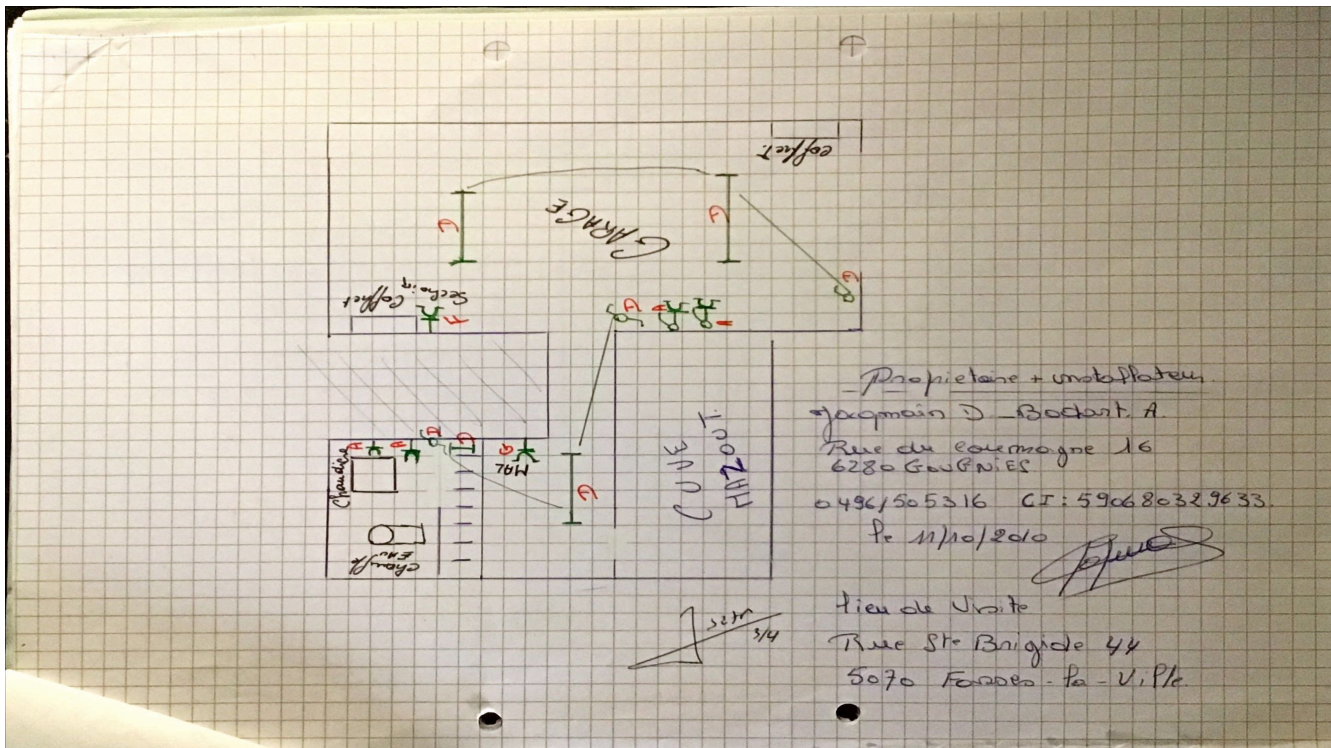 Coffret
D
GARAGE
D
D
Coffret
Sechoir
F
A
A
Chaudière
A
A
A
D
G
MAL
D
CUVE
MAZOUT.
Chauffe
Eau
Propietaire + installateur
Jacqmain D - Bodart. A.
Rue du courmagne 16
6280 GOUGNIES
0496/505316 CI: 590680329633.
le 11/10/2010
lieu de Visite
Rue Ste Brigide 44
5070 Fosses-la-Ville.